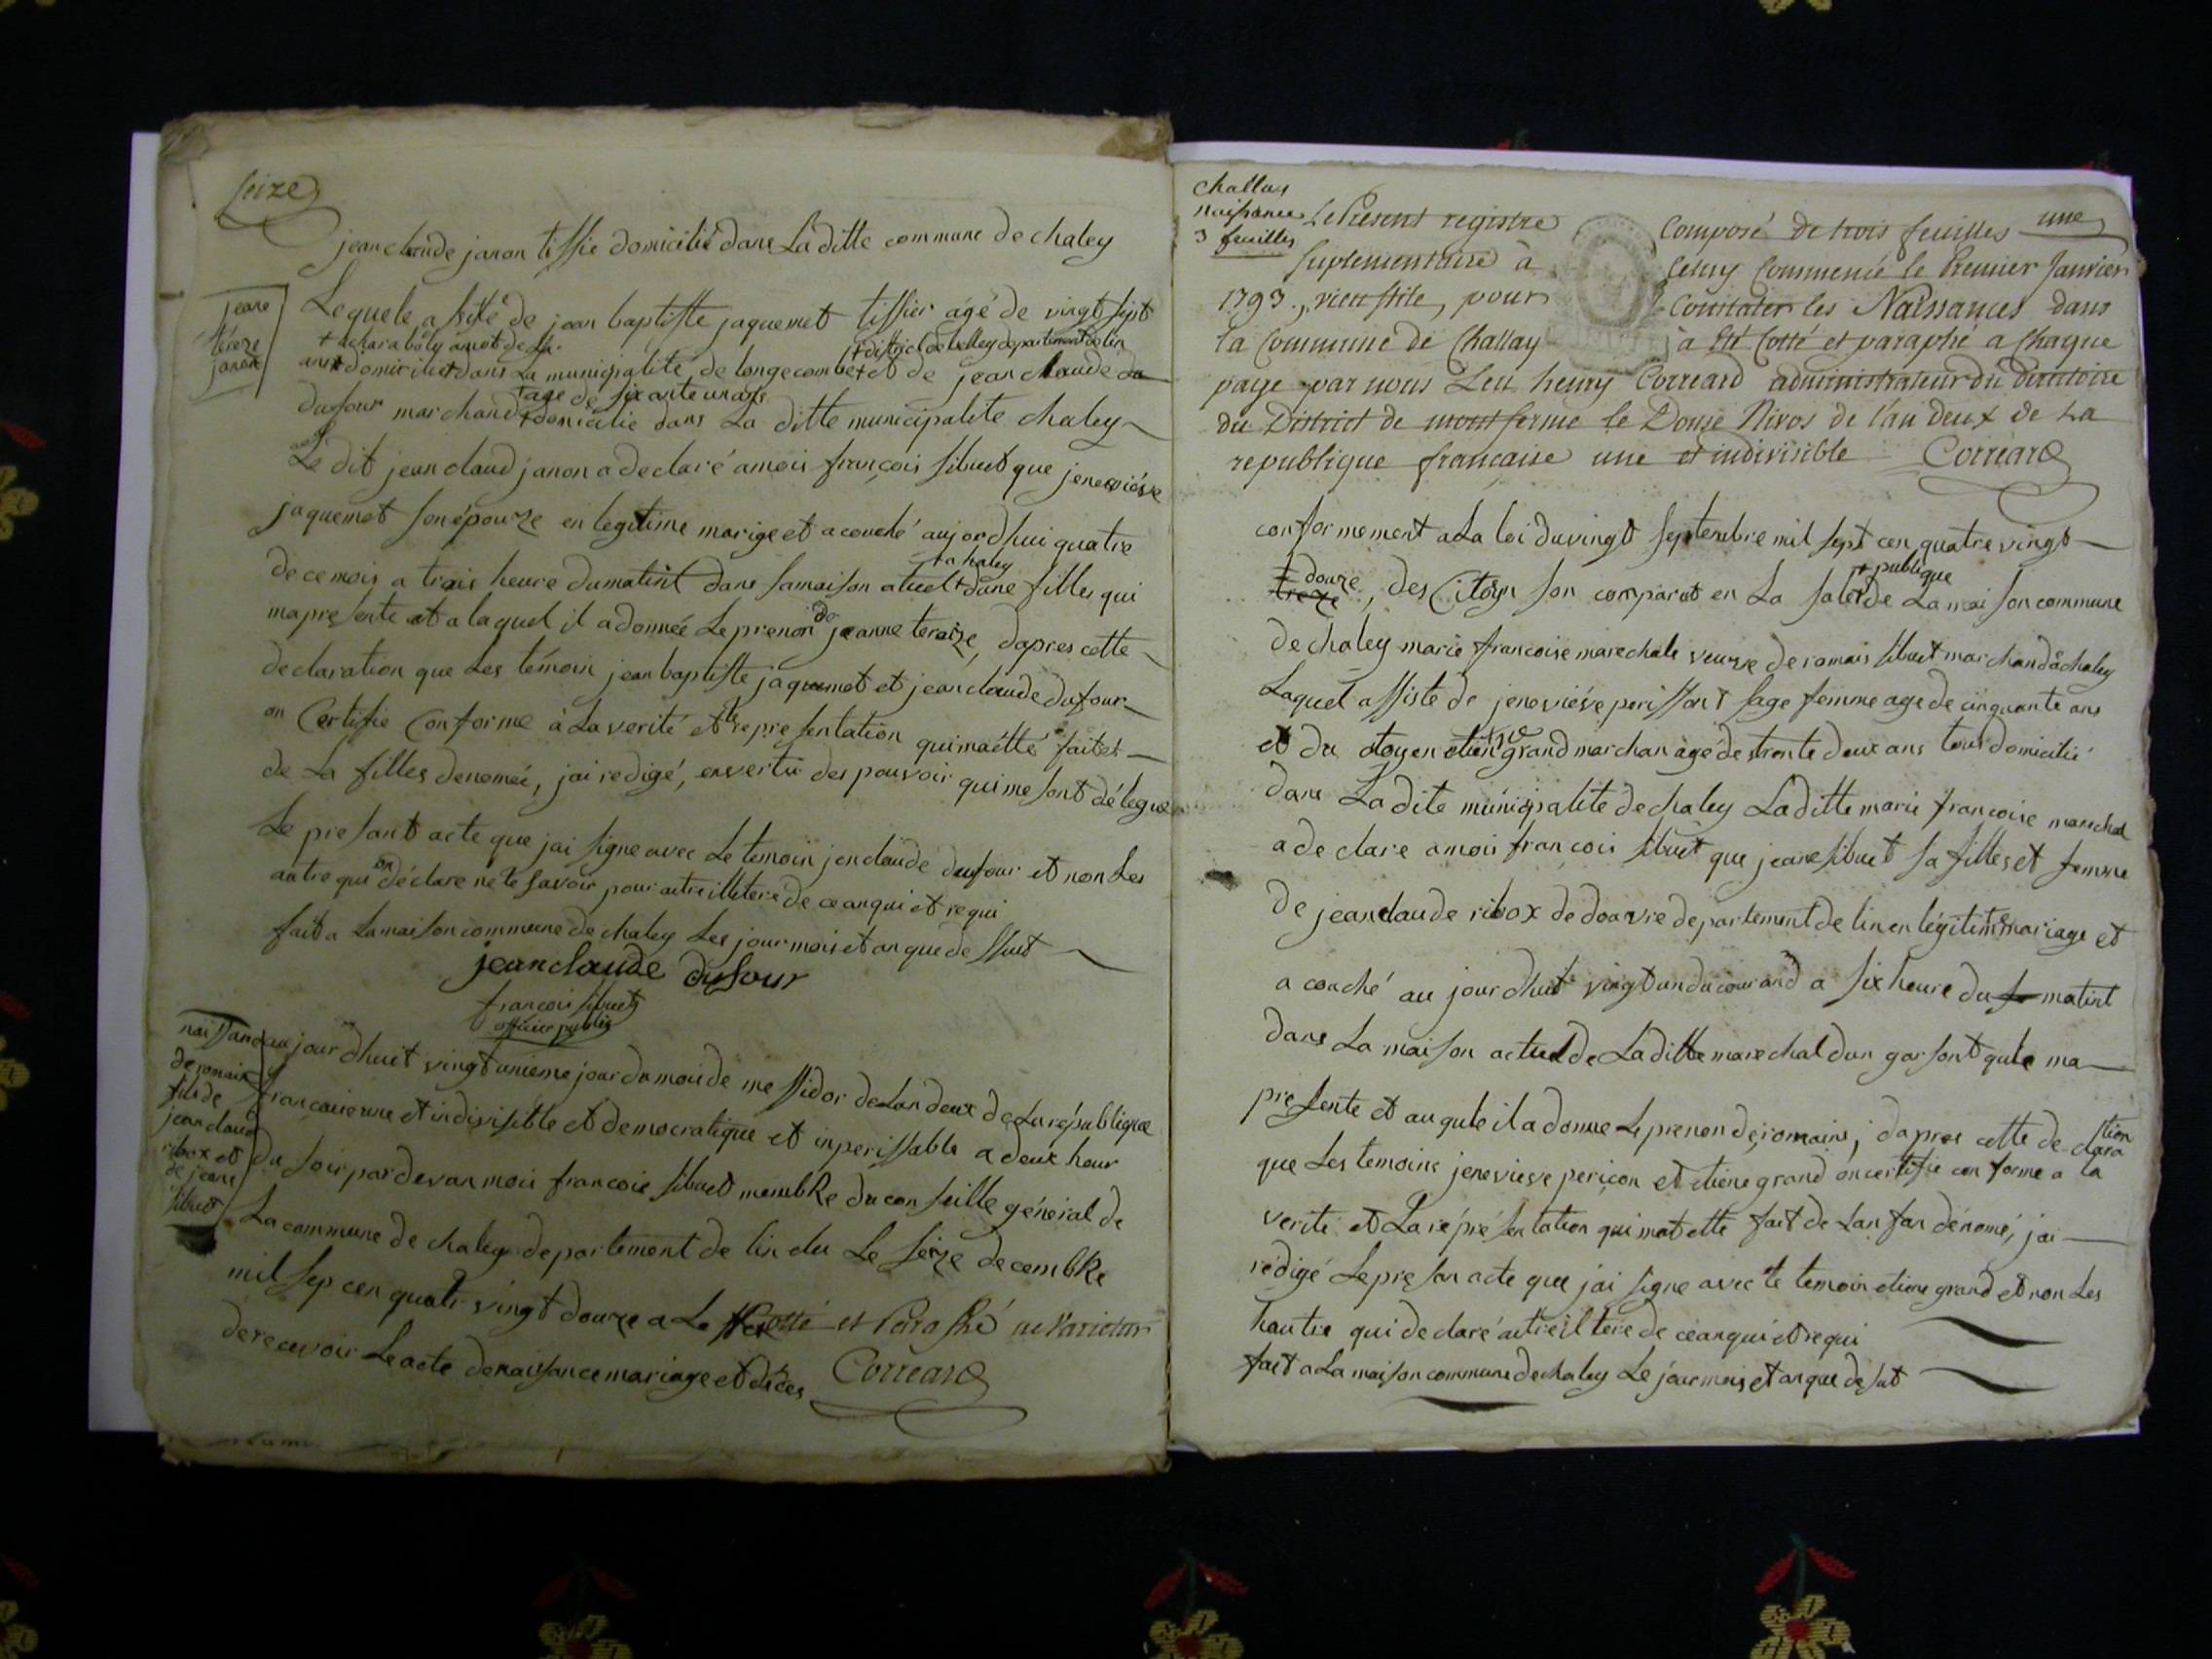 seize
jean claude janon tissie domicilié dans La ditte commune de chaley
jeane
téreze
janon
Lequele asisté de jean baptiste jaquemet tissier agé de vingt sept
+ district de belley departement de lin
ans + domicilie dans La municipalité de longecombe + et de jean claude du
+ age de sixante un ans
dufour marchand + domicilie dans La ditte municipalite chaley
Le dit jean claud janon a declaré a moi françois sibuet que jeneviéve
jaquemet son épouze en legitime marige et acouché aujordhui quatre
+ a haley
de ce mois a trois heure du matint dans sa maison atuel + dune filles qui
ma presente et a laquel il a donnée Le prenon de jeanne teraize, dapres cette
declaration que Les témoin jean baptiste jaquemet et jean claude dufour
on Certifie Conforme à La verité et la representation qui maétté faites
de La filles denomeé, jai redigé, en vertu des pouvoir qui me sont délegué
Le presant acte que jai signe avec Le temoin jen claude dufour et non Les
autre qui on déclare ne le savoir pour aitre illitere de ce anqui et requi
fait a La maison commune de chaley Les jour mois et an que dessuet
jean claude dufour
francois sibuet
officier public
naissance
de romain
fils de
jean claud
ribox et
de jeane
sibuet
aujourdhuit vingt unieme jour du moi de messidor de Lan deux de La république
francoise une et indivisible et democratique et inperissable a deux heur
du soir pardevan moi francois sibuet membre du conseille géneral de
La commune de chaley departement de lin elu Le seize decembre
mil sep cen quatr vingt douze a Le
Cotté et Paraphé ne Varietur
de recevoir Le acte de naissance mariage et déces
Correard
challay
naissances
3 feuilles
une
Le Present registre Composé de trois feuilles
suplementaire à Celuy Commencé le Premier Janvier
1793., vieu stile, pour Constater les Naissances dans
la Commune de Challay à Eté Cotté et paraphé a Chaque
page par nous Leu henry Correard administrateur du directoire
du District de montferme le Douze Nivos de l'an deux de La
republique francaise une et indivisible Correard
conformement a La loi du vingt septembre mil sept cen quatre vingt
+ douze + publique
treze, des Citoyn son comparut en La sale + de La maison commune
de chaley marie francoise marechale veuve de romain sibuet marchand à chaley
Laquel assiste de jeneviéve perisson sage femme age de cinquante ans
et du citoyen etiene grand marchan agé de trente deux ans tous domicilié
dans La dite municipalité de chaley La ditte marie francoise marechal
a declare a moi francois sibuet que jeane sibuet sa filles et femme
de jean claude ribox de doavre departement de lin en légitime mariage et
a couché au jourdhuit vingt un du courand a six heure du matint
dans La maison actuel de La ditte marechal dun garsont qule ma
presente et auqule il a donne Le prenon de romains, dapres cette declaration
que Les temoins jenevieve pericon et etiene grand on certifie conforme a la
verite et La répresentation qui mat etté fait de Lanfan dénomé, jai
redigé Le presan acte que jai signe avec le temoin etiene grand et non Les
hautre qui declaré aitre iltére de ce anqui et requi
fait a La maison commune de chaley Le jour mois et an que desut